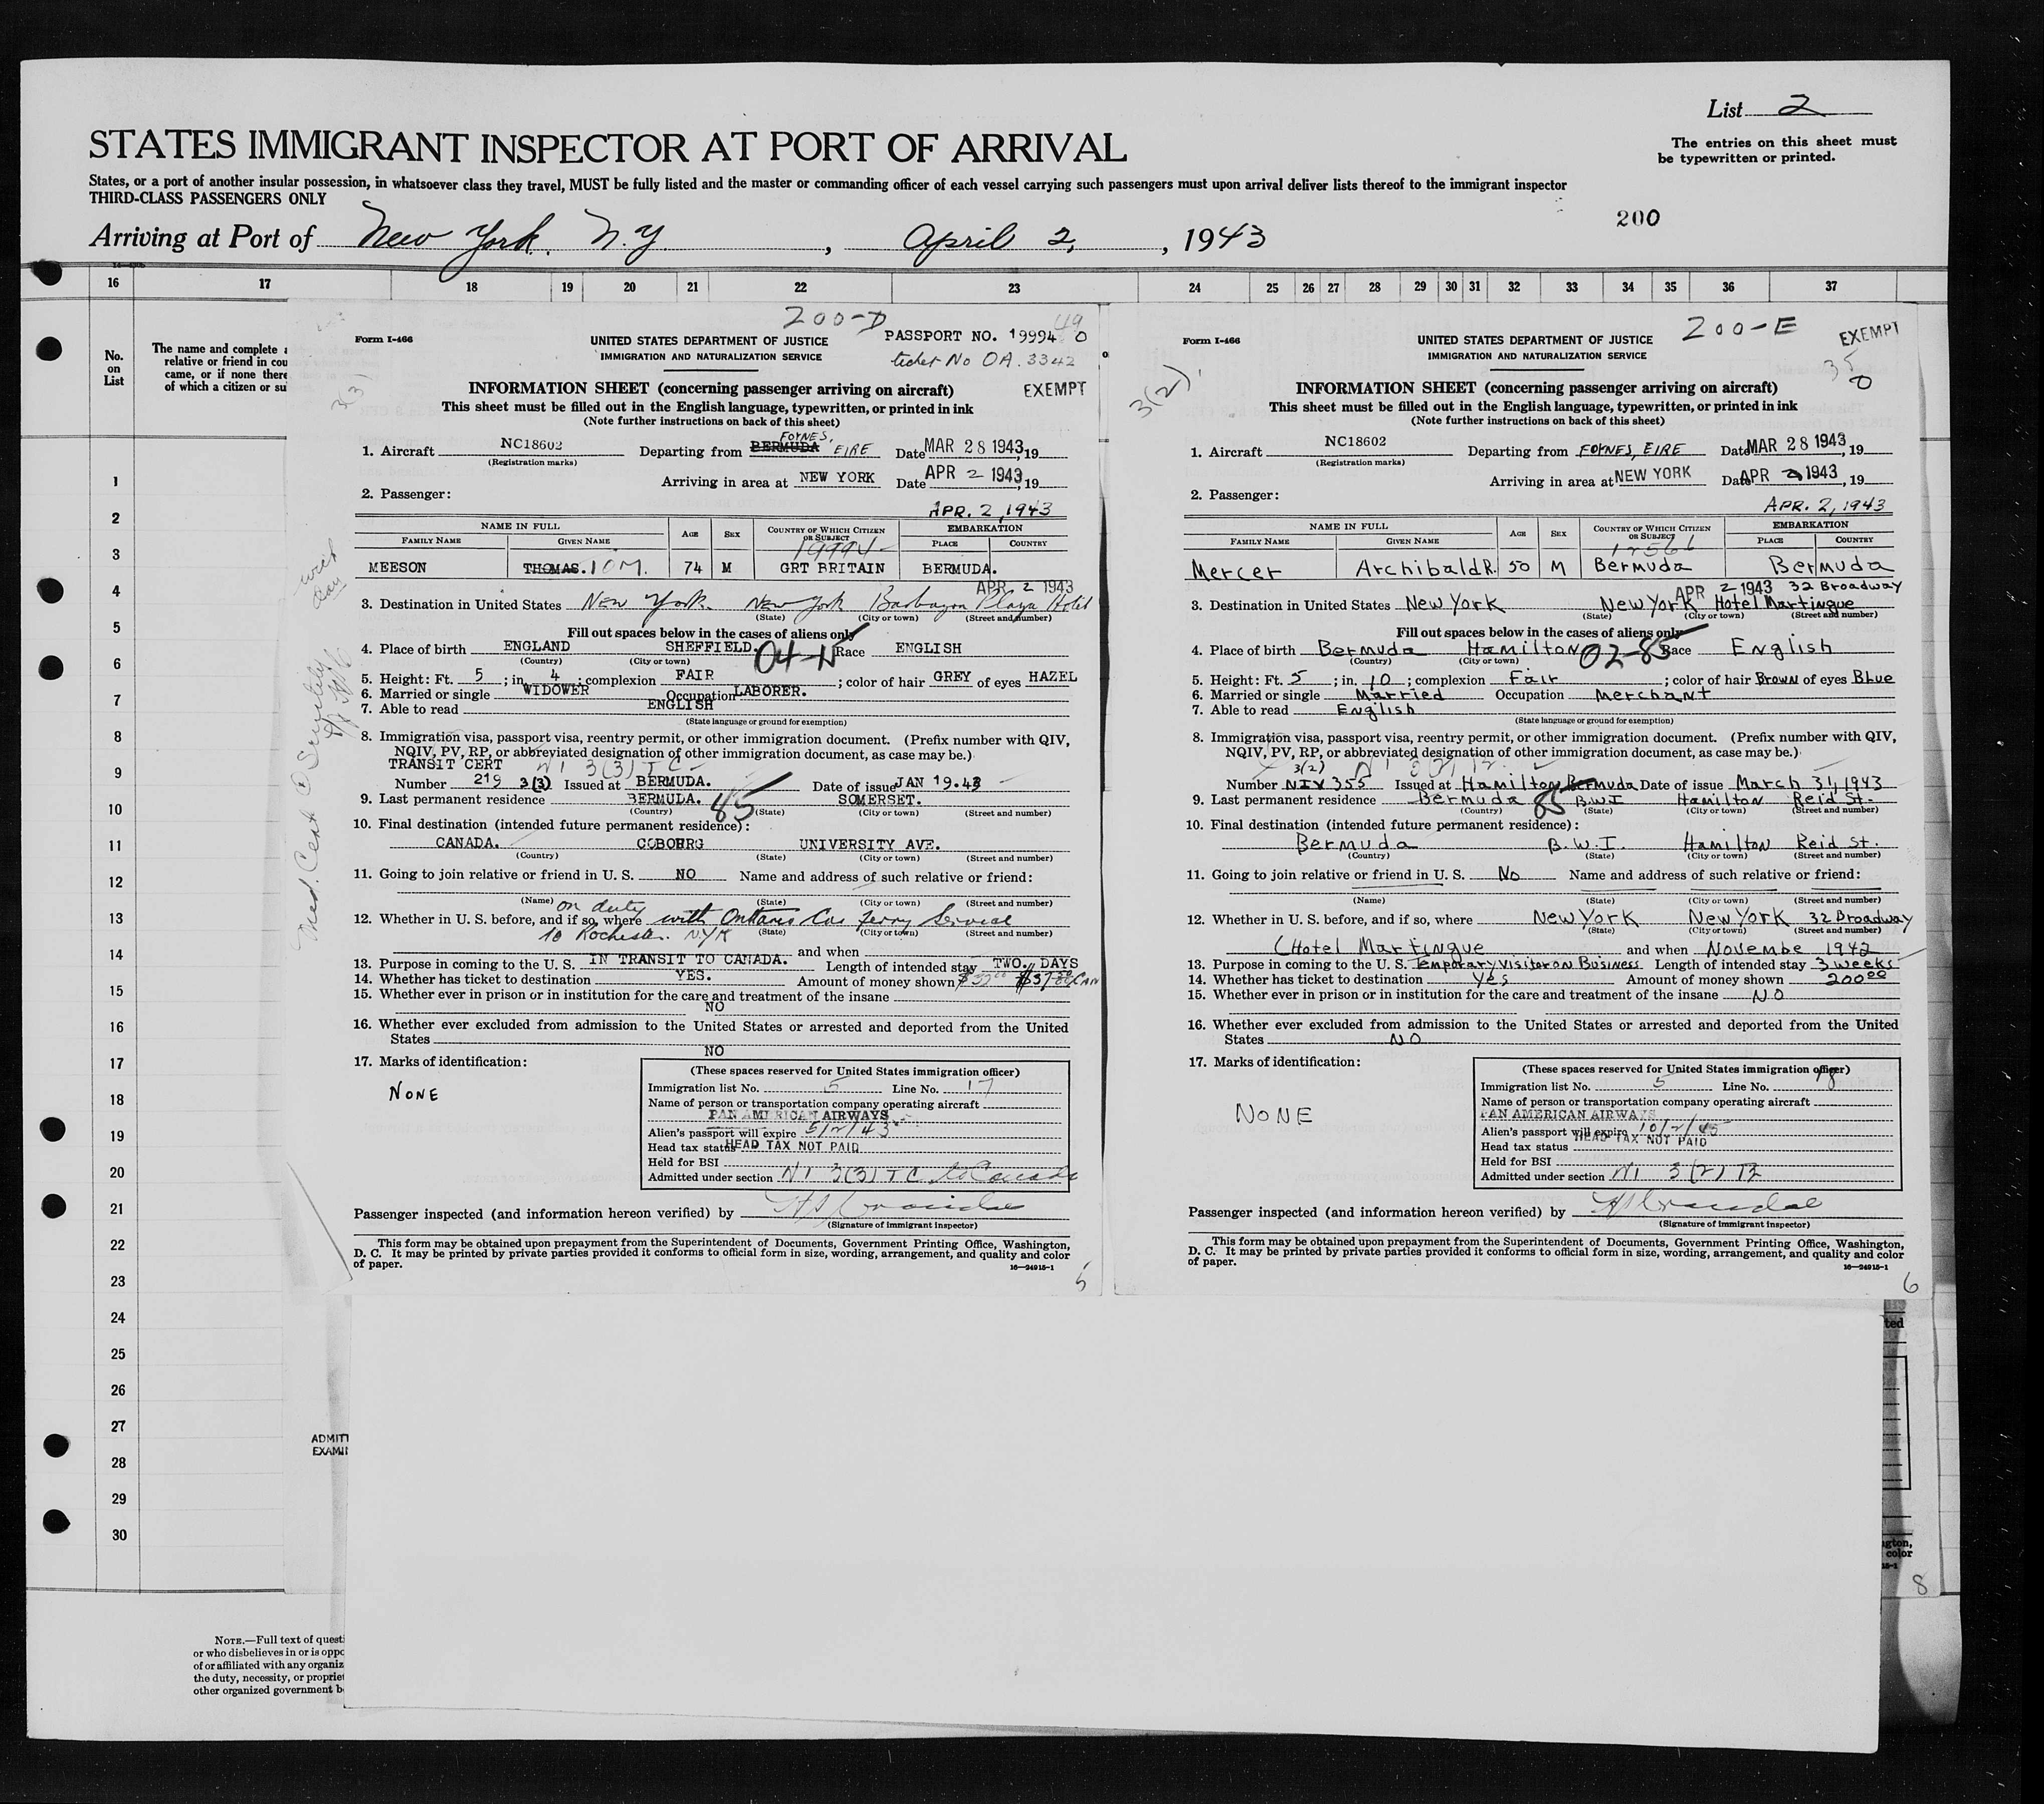 List 2
STATES IMMIGRANT INSPECTOR AT PORT OF ARRIVAL
The entries on this sheet must
be typewritten or printed.
States, or a port of another insular possession, in whatsoever class they travel, MUST be fully listed and the master or commanding officer of each vessel carrying such passengers must upon arrival deliver lists thereof to the immigrant inspector
THIRD-CLASS PASSENGERS ONLY
200
Arriving at Port of New York, N.Y , April 2, , 1943
16 17 18 19 20 21 22 23 24 25 26 27 28 29 30 31 32 33 34 35 36 37
No.
on
List
The name and complete a
relative or friend in cou
came, or if none there
of which a citizen or su
1
2
3
4
5
6
7
8
9
10
11
12
13
14
15
16
17
18
19
20
21
22
23
24
25
26
27
28
29
30
200-D
49
Form I-466
UNITED STATES DEPARTMENT OF JUSTICE
PASSPORT NO. 19994 0
IMMIGRATION AND NATURALIZATION SERVICE
ticket No OA. 3342
3(3)
INFORMATION SHEET (concerning passenger arriving on aircraft)
EXEMPT
This sheet must be filled out in the English language, typewritten, or printed in ink
(Note further instructions on back of this sheet)
1. Aircraft NC18602 Departing from BERMUDA FOYNES, EIRE Date MAR 28 1943, 19
(Registration marks)
Arriving in area at NEW YORK Date APR 2 1943, 19
2. Passenger:
APR. 2, 1943
NAME IN FULL AGE SEX COUNTRY OF WHICH CITIZEN OR SUBJECT EMBARKATION
FAMILY NAME GIVEN NAME PLACE COUNTRY
19994
MEESON THOMAS. TOM. 74 M GRT BRITAIN BERMUDA.
APR 2 1943
3. Destination in United States New York. New York Barbazon Plaza Hotel
(State) (City or town) (Street and number)
Fill out spaces below in the cases of aliens only
4. Place of birth ENGLAND SHEFFIELD. 04-N Race ENGLISH
(Country) (City or town)
5. Height: Ft. 5 ; in. 4 ; complexion FAIR ; color of hair GREY of eyes HAZEL
6. Married or single WIDOWER Occupation LABORER.
7. Able to read ENGLISH
(State language or ground for exemption)
8. Immigration visa, passport visa, reentry permit, or other immigration document. (Prefix number with QIV,
NQIV, PV, RP, or abbreviated designation of other immigration document, as case may be.)
TRANSIT CERT N1 3(3) TC
Number 219 3(3) Issued at BERMUDA. Date of issue JAN 19.43
9. Last permanent residence BERMUDA. 85 SOMERSET.
(Country) (State) (City or town) (Street and number)
10. Final destination (intended future permanent residence):
CANADA. COBOURG UNIVERSITY AVE.
(Country) (State) (City or town) (Street and number)
11. Going to join relative or friend in U. S. NO Name and address of such relative or friend:
(Name) (State) (City or town) (Street and number)
on duty
12. Whether in U. S. before, and if so, where with Ontario Car Ferry Service
to Rochester. NYK (State) (City or town) (Street and number)
and when
13. Purpose in coming to the U. S. IN TRANSIT TO CANADA. Length of intended stay TWO. DAYS
14. Whether has ticket to destination YES. Amount of money shown $37.00 CAN
15. Whether ever in prison or in institution for the care and treatment of the insane
NO
16. Whether ever excluded from admission to the United States or arrested and deported from the United
States NO
17. Marks of identification:
NONE
(These spaces reserved for United States immigration officer)
Immigration list No. 5 Line No. 17
Name of person or transportation company operating aircraft
PAN AMERICAN AIRWAYS
Alien's passport will expire 5/2/43
Head tax status HEAD TAX NOT PAID
Held for BSI
Admitted under section N1 3(3) TC to Canada
Passenger inspected (and information hereon verified) by
(Signature of immigrant inspector)
This form may be obtained upon prepayment from the Superintendent of Documents, Government Printing Office, Washington,
D. C. It may be printed by private parties provided it conforms to official form in size, wording, arrangement, and quality and color
of paper.
16—24915-1
5
200-E
EXEMPT
35
0
Form I-466
UNITED STATES DEPARTMENT OF JUSTICE
IMMIGRATION AND NATURALIZATION SERVICE
3(2)
INFORMATION SHEET (concerning passenger arriving on aircraft)
This sheet must be filled out in the English language, typewritten, or printed in ink
(Note further instructions on back of this sheet)
1. Aircraft NC18602 Departing from FOYNES, EIRE Date MAR 28 1943, 19
(Registration marks)
Arriving in area at NEW YORK Date APR 2 1943, 19
2. Passenger:
APR. 2, 1943
NAME IN FULL AGE SEX COUNTRY OF WHICH CITIZEN OR SUBJECT EMBARKATION
FAMILY NAME GIVEN NAME PLACE COUNTRY
12566
Mercer Archibald R. 50 M Bermuda Bermuda
APR 2 1943 32 Broadway
3. Destination in United States New York New York Hotel Martingue
(State) (City or town) (Street and number)
Fill out spaces below in the cases of aliens only
4. Place of birth Bermuda Hamilton 02-85 Race English
(Country) (City or town)
5. Height: Ft. 5 ; in. 10 ; complexion Fair ; color of hair Brown of eyes Blue
6. Married or single Married Occupation Merchant
7. Able to read English
(State language or ground for exemption)
8. Immigration visa, passport visa, reentry permit, or other immigration document. (Prefix number with QIV,
NQIV, PV, RP, or abbreviated designation of other immigration document, as case may be.)
3(2)
Number NIV 355 Issued at Hamilton Bermuda Date of issue March 31, 1943
9. Last permanent residence Bermuda 85 B.W.I Hamilton Reid St.
(Country) (State) (City or town) (Street and number)
10. Final destination (intended future permanent residence):
Bermuda B.W.I. Hamilton Reid St.
(Country) (State) (City or town) (Street and number)
11. Going to join relative or friend in U. S. No Name and address of such relative or friend:
(Name) (State) (City or town) (Street and number)
12. Whether in U. S. before, and if so, where New York New York 32 Broadway
(State) (City or town) (Street and number)
(Hotel Martingue and when Novembe 1942
13. Purpose in coming to the U. S. Temporary visitor on Business Length of intended stay 3 weeks
14. Whether has ticket to destination Yes Amount of money shown 200 00
15. Whether ever in prison or in institution for the care and treatment of the insane NO
16. Whether ever excluded from admission to the United States or arrested and deported from the United
States NO
17. Marks of identification:
NONE
(These spaces reserved for United States immigration officer)
Immigration list No. 5 Line No. 18
Name of person or transportation company operating aircraft
PAN AMERICAN AIRWAYS
Alien's passport will expire 10/2/45
Head tax status HEAD TAX NOT PAID
Held for BSI
Admitted under section N1 3(2) T2
Passenger inspected (and information hereon verified) by
(Signature of immigrant inspector)
This form may be obtained upon prepayment from the Superintendent of Documents, Government Printing Office, Washington,
D. C. It may be printed by private parties provided it conforms to official form in size, wording, arrangement, and quality and color
of paper.
16—24915-1
6
ted
ADMITT
EXAMI
ngton,
color
8
NOTE.—Full text of questi
or who disbelieves in or is oppo
of or affiliated with any organiz
the duty, necessity, or propriet
other organized government b